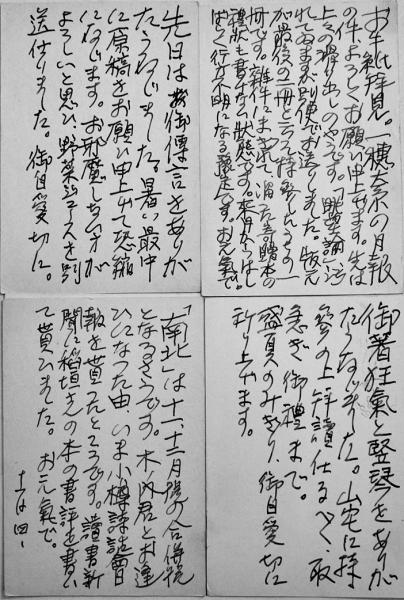 お手紙拝見。一穂の月報
の件、よろしくお願い申上げます。先は
上々の滑り出しのやうです。
れてゐますが別便でお送りしました。版元
が最後の一冊と云って持参した
冊です。雑件にまぎれて滞った寄贈本の
禮状も書けない状態です。本月からはし
ばらく行方不明になる豫定です。お元気で。
先日は御傳言をありが
たうございました。暑い最中
に原稿をお願い申上げて恐縮
にぞんじます。お邪魔しない方が
よろしいと思ひ、野菜ジュースを別
送仕りました。御自愛切に。
御著狂氣と竪琴をありが
たうございました。山宅に
参の上拝讀仕るべく、取
急ぎ御禮まで。
盛夏のみぎり、御自愛切に
祈り上げます。
「南北」は十一、十二月號の合併號
となるさうです。木内君とお逢
ひになった由、いま小樽
報を貰ったところです。讀書新
聞に稲垣さんの本の書評を書い
て貰ひました。お元氣で。